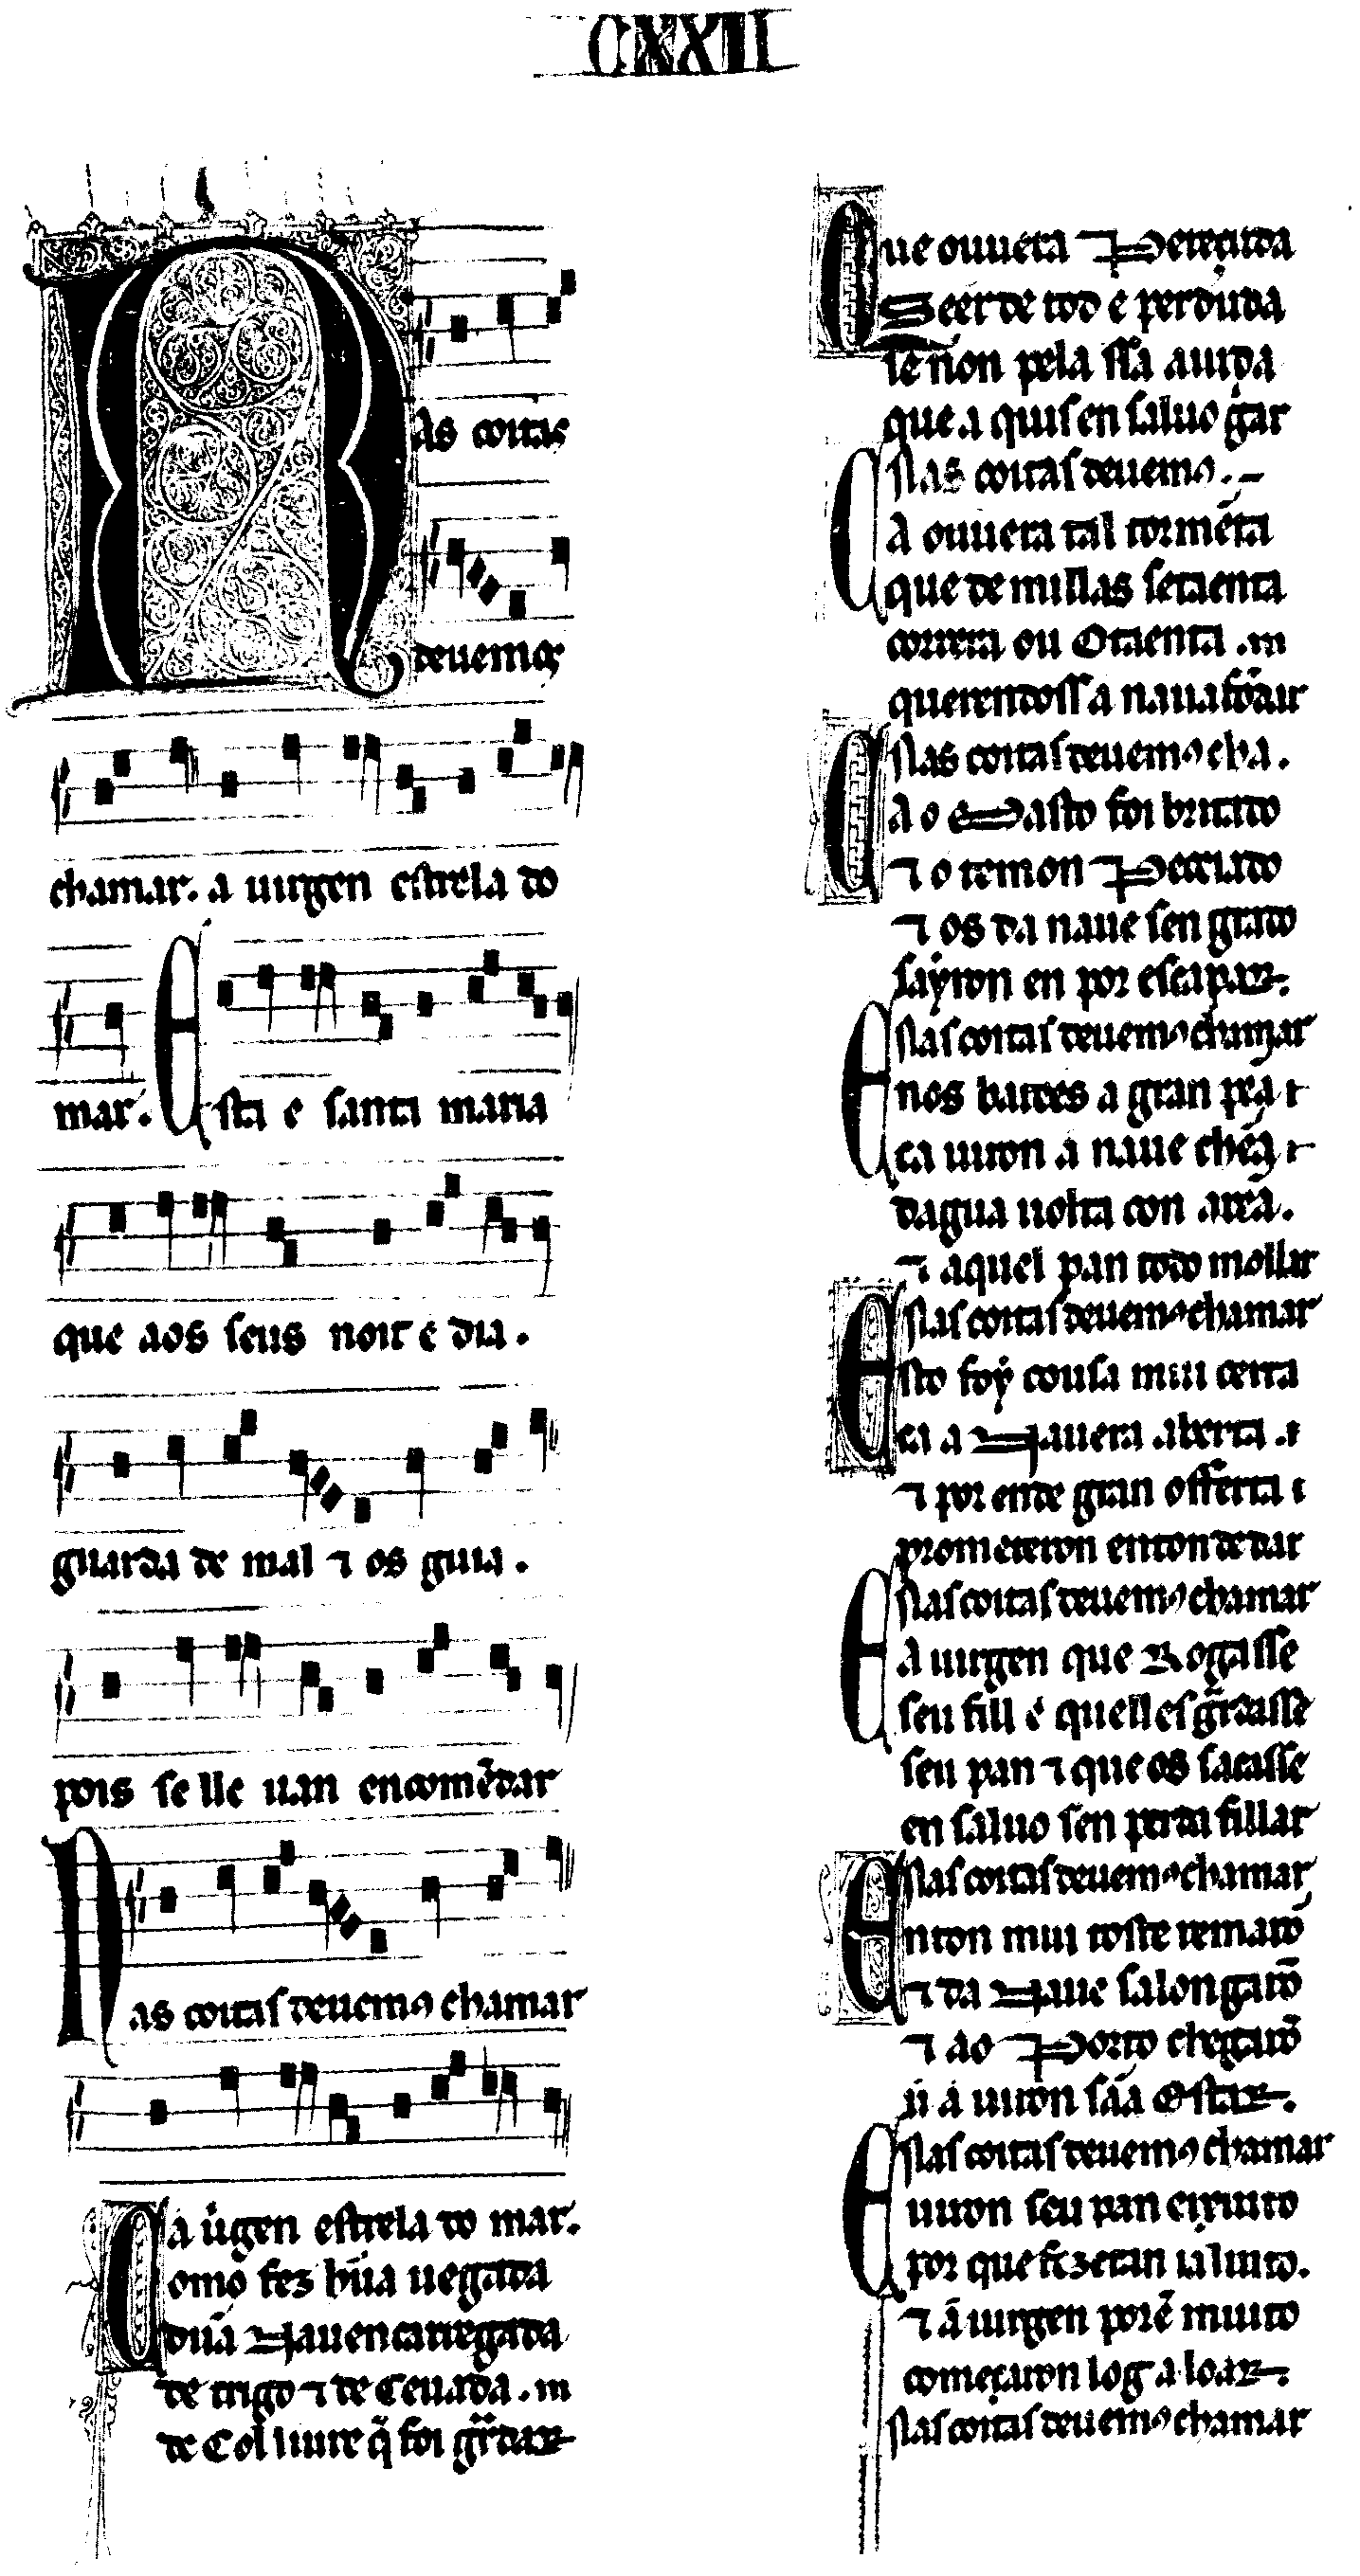 CXXII
Nas coitas
deuemos
chamar. a uirgen estrela do
mar. Esta e santa maria
que aos seus noit e dia.
guarda de mal ⁊ os guia.
pois se lle uan encomẽdar
Nas coitas deuemꝯ chamar
a uirgen estrela do mar.
Como fez hũa uegada
dũa Naue encarregada
de trigo ⁊ de Ceuada.
de Col liure q̃ foi guardar
Que ouuera Pereçuda
Seer de tod e perduda
se non pela ssa aiuda
que a quis en saluo g̃ar
Nas coitas deuemꝯ.
Ca ouuera tal tormẽta
que de millas setaenta
correra ou Otaenta.
querendoss a naua fõdar
Nas coitas deuemꝯ cha.
Ca o Masto foi britado
⁊ o temon Peceiado
⁊ os da naue sen grado
sayron en por escapar.
Nas coitas deuemꝯ chamar
Enos batees a gran pẽa
ca uiron a naue chẽa
dagua uolta con arẽa.
⁊ aquel pan todo mollar
Nas coitas deuemꝯ chamar
Esto foy cousa mui certa
ca a Nauera aberta.
⁊ por ende gran offerta
prometeron enton de dar
Nas coitas deuemꝯ chamar
E a uirgen que Rogasse
seu fill e quelles g̃rdasse
seu pan ⁊ que os sacasse
en saluo sen perda fillar
Nas coitas deuemꝯ chamar
Enton mui toste remarõ
⁊ da Naue salongarõ
⁊ ao Porto chegarõ
ú á uiron sãa Estar.
Nas coitas deuemꝯ chamar
E uiron seu pan eixuito
por que fezeran ia luito.
⁊ á uirgen porẽ muito
começaron log a loar.
Nas coitas deuemꝯ chamar